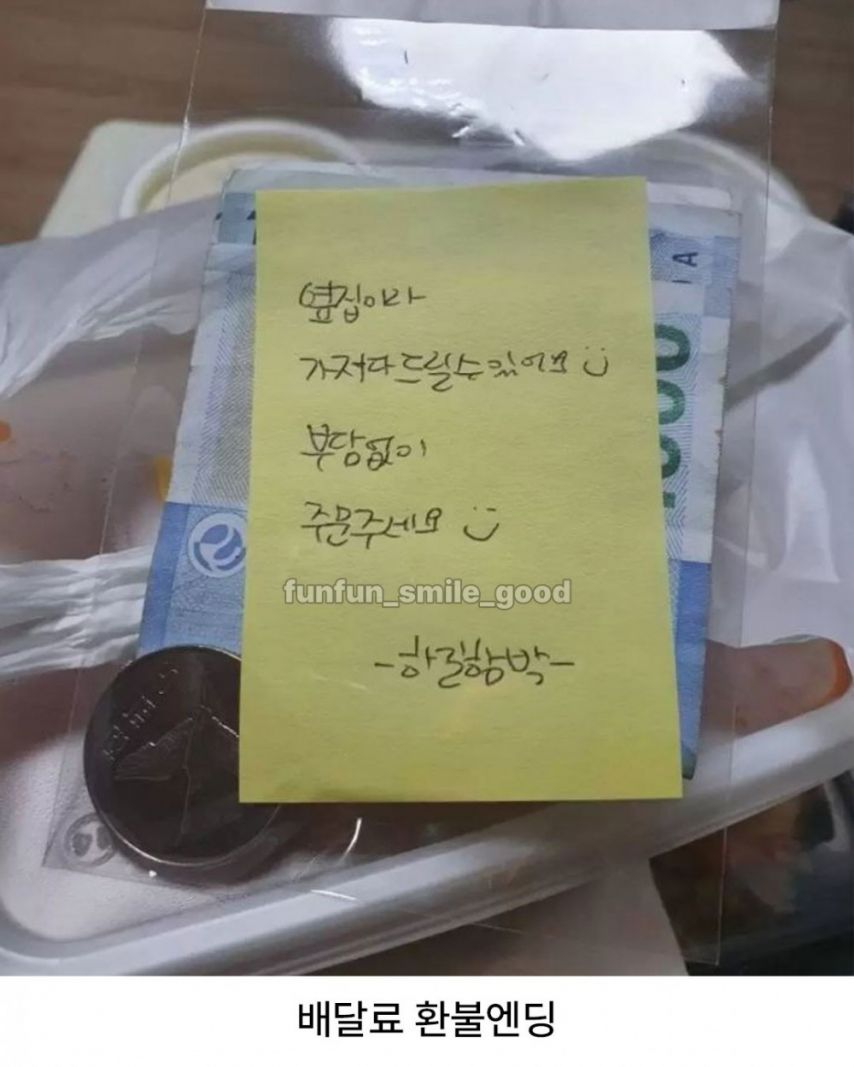 옆집이라
가져다 드릴수 있어요
부담없이
주문주세요
funfun_smile_good
-하릴함박-
1000
A
배달료 환불엔딩